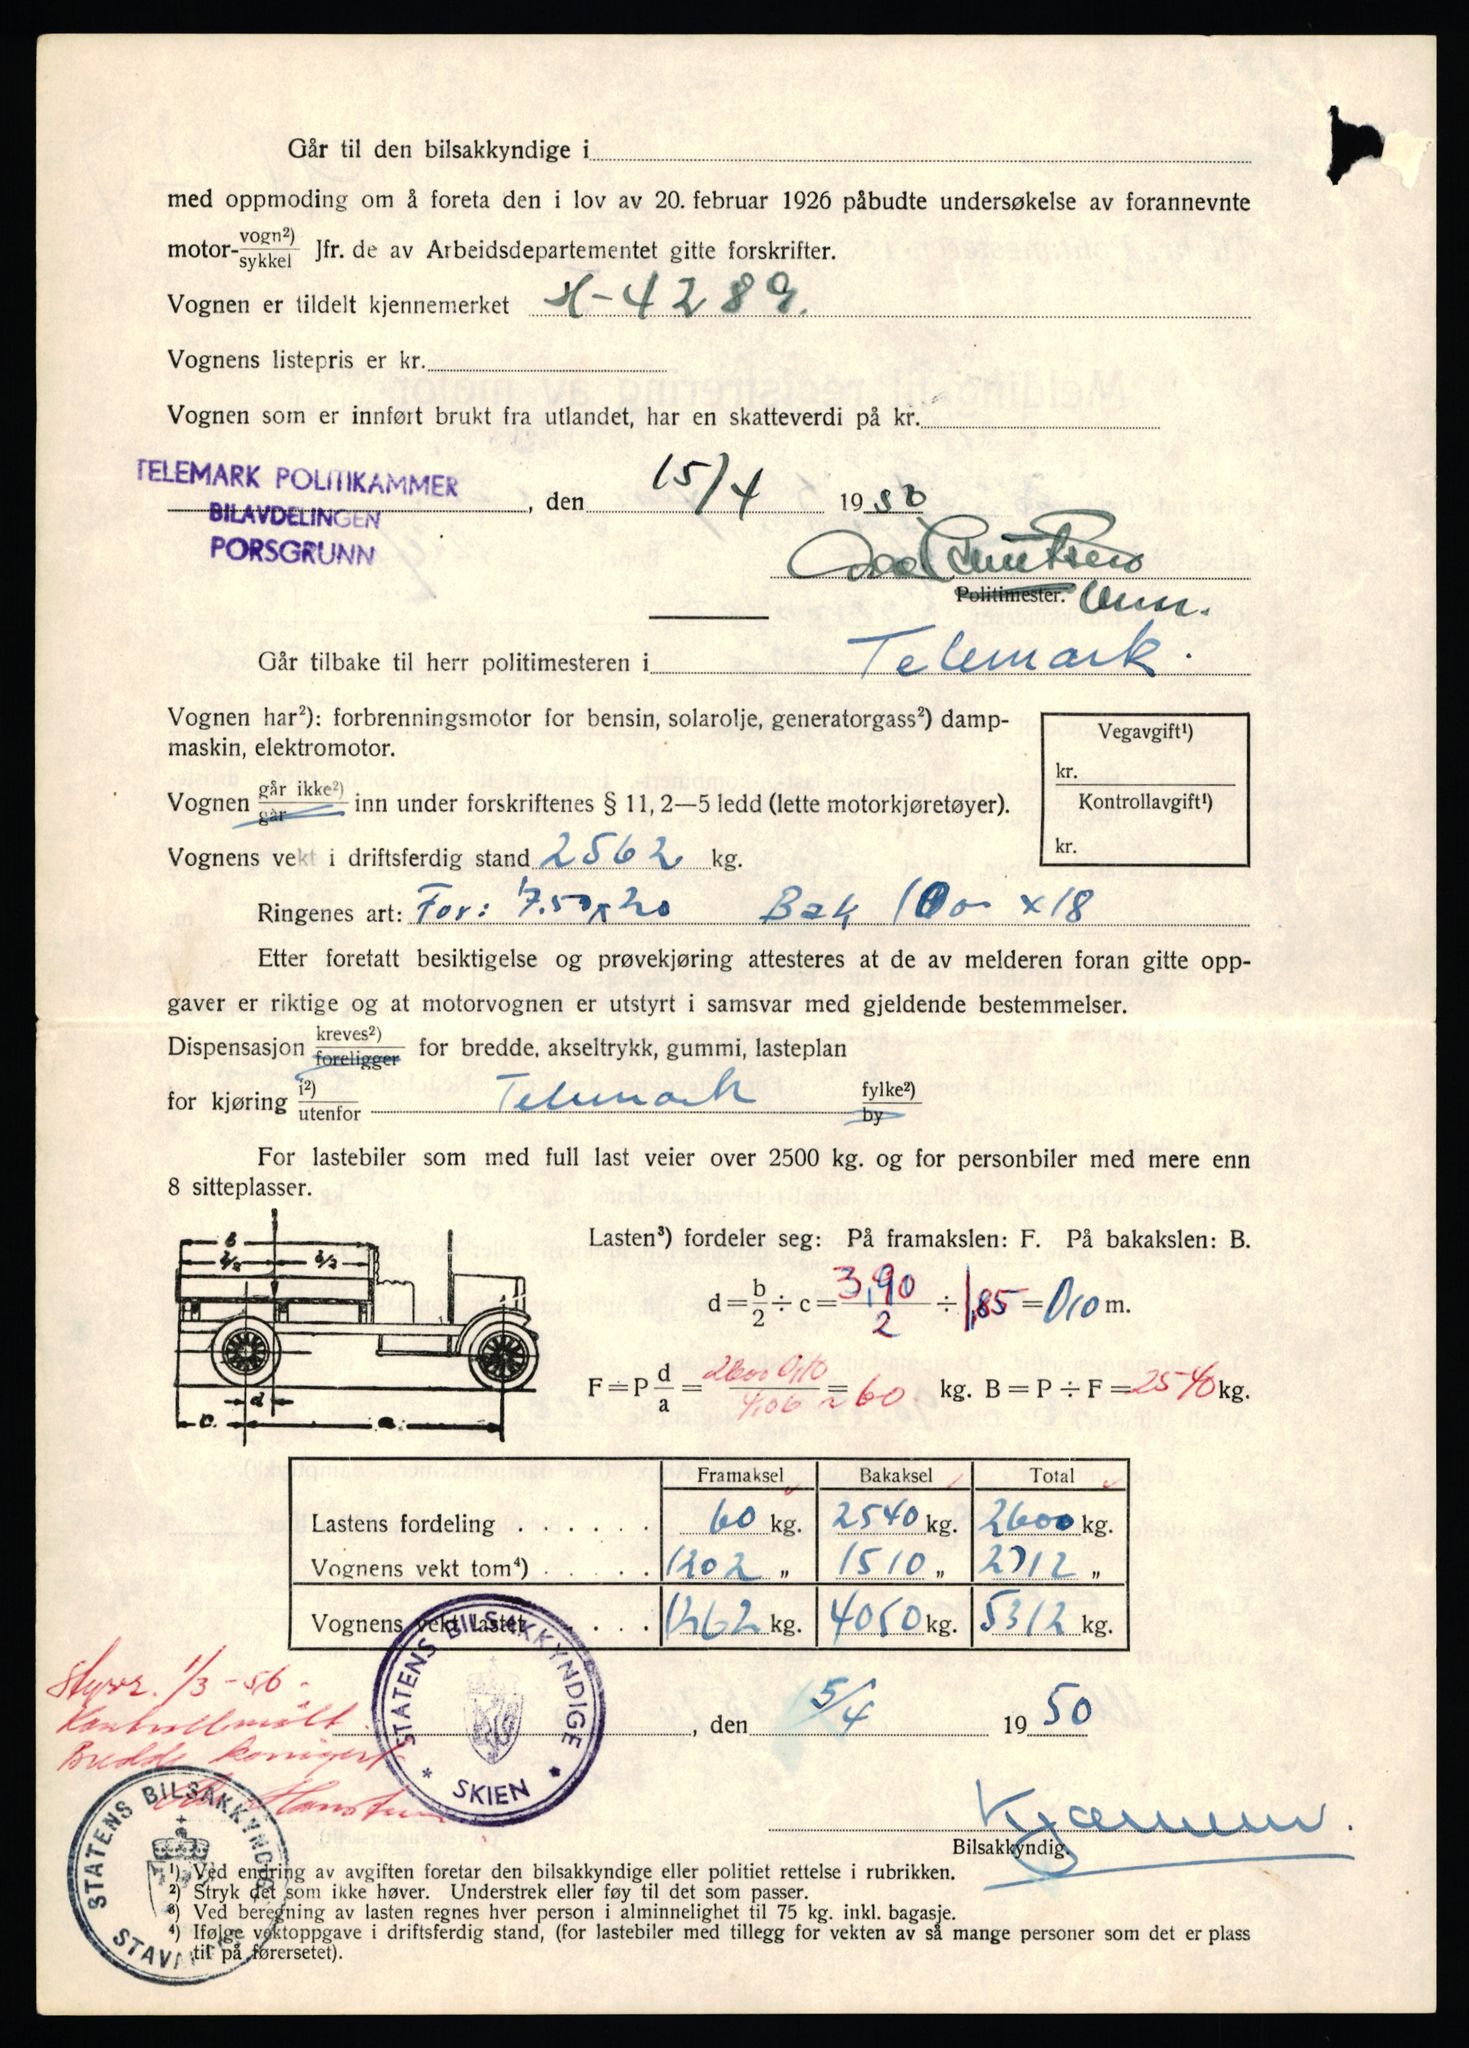 Går til den bilsakkyndige i
med oppmoding om å foreta den i lov av 20. februar 1926 påbudte undersøkelse av forannevnte
motor- vogn²) / sykkel Jfr. de av Arbeidsdepartementet gitte forskrifter.
Vognen er tildelt kjennemerket H-4289.
Vognens listepris er kr.
Vognen som er innført brukt fra utlandet, har en skatteverdi på kr.
TELEMARK POLITIKAMMER
BILAVDELINGEN
PORSGRUNN
, den 15/4 1950
Politimester.
Går tilbake til herr politimesteren i Telemark.
Vognen har²): forbrenningsmotor for bensin, solarolje, generatorgass²) damp-
maskin, elektromotor.
Vegavgift¹)
kr.
Kontrollavgift¹)
kr.
Vognen går ikke²) / går inn under forskriftenes § 11, 2—5 ledd (lette motorkjøretøyer).
Vognens vekt i driftsferdig stand 2562 kg.
Ringenes art: For: 7.50x20 Bak 1000 x18
Etter foretatt besiktigelse og prøvekjøring attesteres at de av melderen foran gitte opp-
gaver er riktige og at motorvognen er utstyrt i samsvar med gjeldende bestemmelser.
Dispensasjon kreves²) / foreligger for bredde, akseltrykk, gummi, lasteplan
for kjøring i²) / utenfor Telemark fylke²) / by
For lastebiler som med full last veier over 2500 kg. og for personbiler med mere enn
8 sitteplasser.
Lasten³) fordeler seg: På framakslen: F. På bakakslen: B.
b
b/2 b/2
d = b/2 ÷ c = 3,90/2 ÷ 1,85 = 0,10 m.
F = P d/a = 2600 0,10 / 4,06 = ~ 60 kg. B = P ÷ F = 2540 kg.
c. d a.
Framaksel Bakaksel Total
Lastens fordeling . . . . . . 60 kg. 2540 kg. 2600 kg.
Vognens vekt tom⁴) . . . . . 1202 „ 1510 „ 2712 „
Vognens vekt lastet . . . . 1262 kg. 4050 kg. 5312 kg.
STATENS BILSAKKYNDIGE * SKIEN *
1/3-56.
Kontrollmålt
Bredde
, den 5/4 1950
Bilsakkyndig.
STATENS BILSAKKYNDIGE
¹) Ved endring av avgiften foretar den bilsakkyndige eller politiet rettelse i rubrikken.
²) Stryk det som ikke høver. Understrek eller føy til det som passer.
³) Ved beregning av lasten regnes hver person i alminnelighet til 75 kg. inkl. bagasje.
⁴) Ifølge vektoppgave i driftsferdig stand, (for lastebiler med tillegg for vekten av så mange personer som det er plass
til på førersetet).